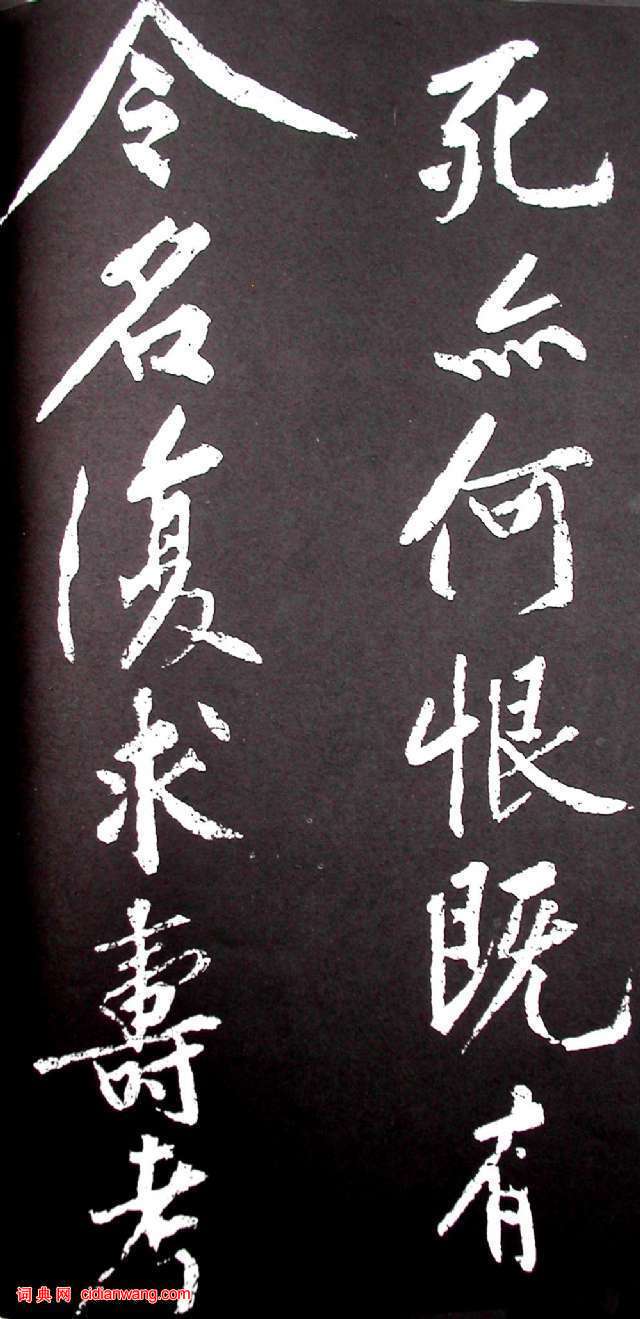 死亦何恨既有
令名復求壽考
词典网 cidianwang.com